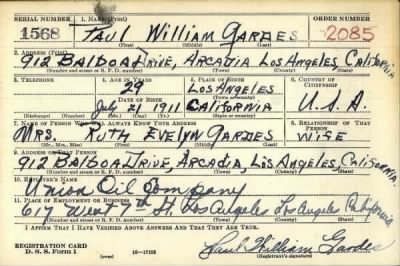 SERIAL NUMBER 1. NAME (Print) ORDER NUMBER
1568 PAUL WILLIAM GARDES 2085
(First) (Middle) (Last)
2. ADDRESS (Print)
912 BALBOA DRIVE, ARCADIA LOS ANGELES, CALIFORNIA
(Number and street or R. F. D. number) (Town) (County) (State)
3. TELEPHONE 4. AGE IN YEARS 5. PLACE OF BIRTH 6. COUNTRY OF CITIZENSHIP
29 LOS ANGELES
DATE OF BIRTH (Town or county)
July 21 1911 CALIFORNIA U.S.A.
(Exchange) (Number) (Mo.) (Day) (Yr.) (State or country)
7. NAME OF PERSON WHO WILL ALWAYS KNOW YOUR ADDRESS 8. RELATIONSHIP OF THAT PERSON
MRS. RUTH EVELYN GARDES WIFE
(Mr., Mrs., Miss) (First) (Middle) (Last)
9. ADDRESS OF THAT PERSON
912 BALBOA DRIVE, ARCADIA, LOS ANGELES, CALIFORNIA.
(Number and street or R. F. D. number) (Town) (County) (State)
10. EMPLOYER'S NAME
Union Oil Company
11. PLACE OF EMPLOYMENT OR BUSINESS
617 West 7th St. Los Angeles Los Angeles California
(Number and street or R. F. D. number) (Town) (County) (State)
I AFFIRM THAT I HAVE VERIFIED ABOVE ANSWERS AND THAT THEY ARE TRUE.
REGISTRATION CARD
D. S. S. Form 1 16—17105 Paul William Gardes